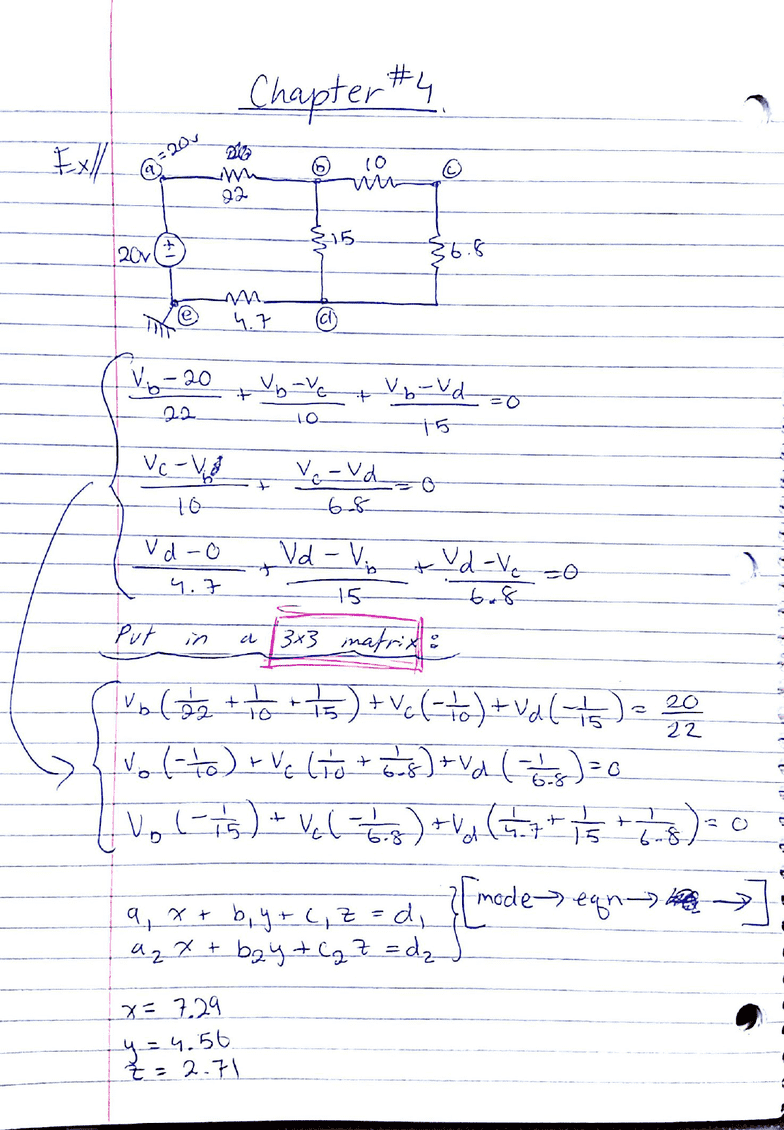 Chapter #4.
Ex// ⓐ=20v ⓑ 10 ⓒ
22
20v + − 15 6.8
ⓔ 4.7 ⓓ
(Vb − 20)/22 + (Vb − Vc)/10 + (Vb − Vd)/15 = 0
(Vc − Vb)/10 + (Vc − Vd)/6.8 = 0
(Vd − 0)/4.7 + (Vd − Vb)/15 + (Vd − Vc)/6.8 = 0
Put in a 3x3 matrix:
Vb (1/22 + 1/10 + 1/15) + Vc (−1/10) + Vd (−1/15) = 20/22
Vb (−1/10) + Vc (1/10 + 1/6.8) + Vd (−1/6.8) = 0
Vb (−1/15) + Vc (−1/6.8) + Vd (1/4.7 + 1/15 + 1/6.8) = 0
a₁ x + b₁ y + c₁ z = d₁ } [mode → eqn → →]
a₂ x + b₂ y + c₂ z = d₂
x = 7.29
y = 4.56
z = 2.71